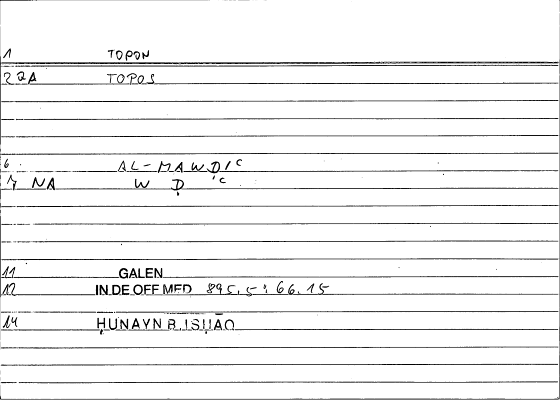 1 TOPON
2 2A TOPOS
6 AL-MAWḌIʿ
7 NA W Ḍ ʿ
11 GALEN
12 IN DE OFF MED 895.5 : 66.15
14 ḤUNAYN B. ISḤĀQ